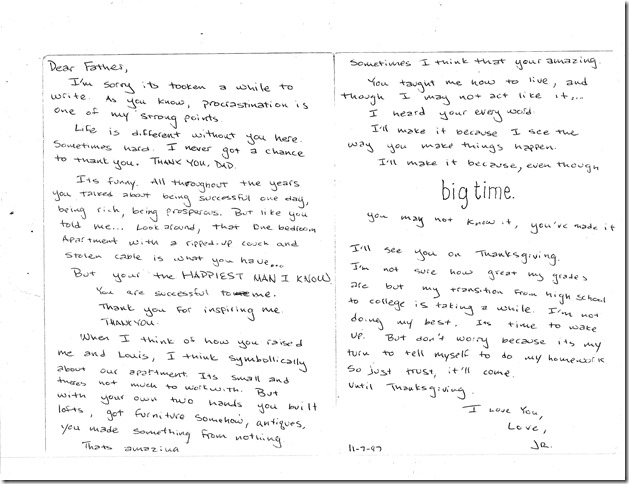 Dear Father,
I'm sorry its tooken a while to
write. As you know, procrastination is
one of my strong points.
Life is different without you here.
Sometimes hard. I never got a chance
to thank you. THANK YOU, DAD.
Its funny. All throughout the years
you talked about being successful one day,
being rich, being prosperous. But like you
told me... Look around, that one bedroom
Apartment with a ripped-up couch and
stolen cable is what you have...
But your the HAPPIEST MAN I KNOW
You are successful to me.
Thank you for inspiring me.
THANK YOU.
When I think of how you raised
me and Louis, I think symbollically
about our apartment. Its small and
theres not much to work with. But
with your own two hands you built
lofts, got furniture somehow, antiques,
you made something from nothing
Thats amazing
Sometimes I think that your amazing.
You taught me how to live, and
though I may not act like it,...
I heard your every word.
I'll make it because I see the
way you make things happen.
I'll make it because, even though
big time.
you may not know it, you've made it
I'll see you on Thanksgiving.
I'm not sure how great my grades
are but my transition from high school
to college is taking a while. I'm not
doing my best. Its time to wake
up. But don't worry because its my
turn to tell myself to do my homework
So just trust, it'll come.
Until Thanksgiving.
I Love You,
Love,
JR.
11-7-97